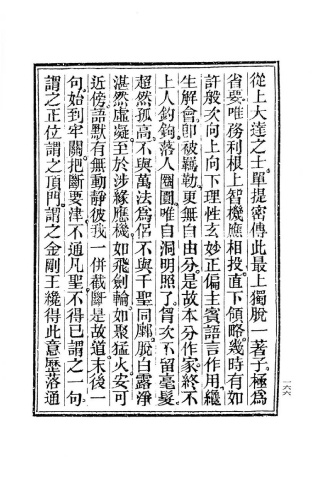 從上大達之士單提密傳此最上獨脫一著子極爲
省要唯務利根上智機應相投直下領略幾時有如
許般次向上向下理性玄妙正偏主賓語言作用纔
生解會卽被羈勒更無自由分是故本分作家終不
上人釣鉤落人圈圚唯自洞明照了胷次不留毫髮
超然孤高不與萬法爲侶不與千聖同廓脫白露淨
湛然虛凝至於涉緣應機如飛劍輪如聚猛火安可
近傍語默有無動靜彼我一併截斷是故道末後一
句始到牢關把斷要津不通凡聖不得已謂之一句
謂之正位謂之頂門謂之金剛王纔得此意歷落通
一六六